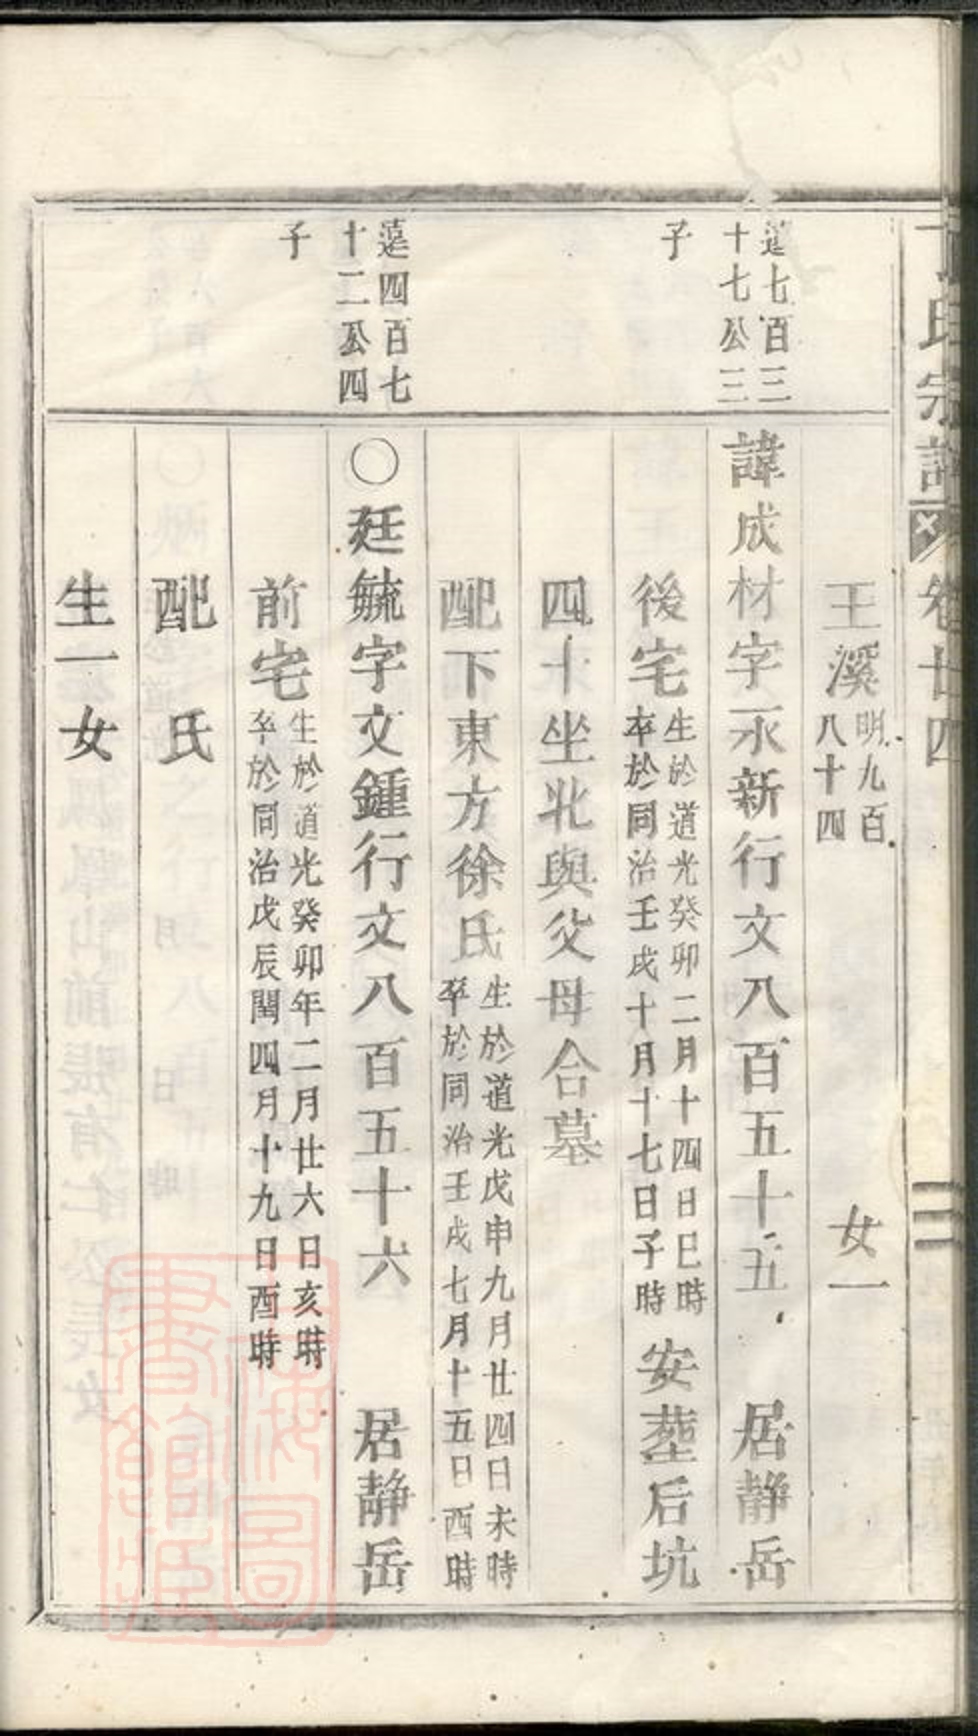 氏宗譜 卷廿四 二
王溪 明九百八十四 女一
蓮七百三十七公三子
諱成材字永新行文八百五十五 居靜岳
後宅 生於道光癸卯二月十四日巳時 卒於同治壬戌十月十七日子時 安塟后坑
四十坐北與父母合墓
配下東方徐氏 生於道光戊申九月廿四日未時 卒於同治壬戌七月十五日酉時
蓮四百七十二公四子
〇廷毓字文鍾行文八百五十六 居靜岳
前宅 生於道光癸卯年二月廿六日亥時 卒於同治戊辰閏四月十九日酉時
配 氏
生一女
上海圖書館藏